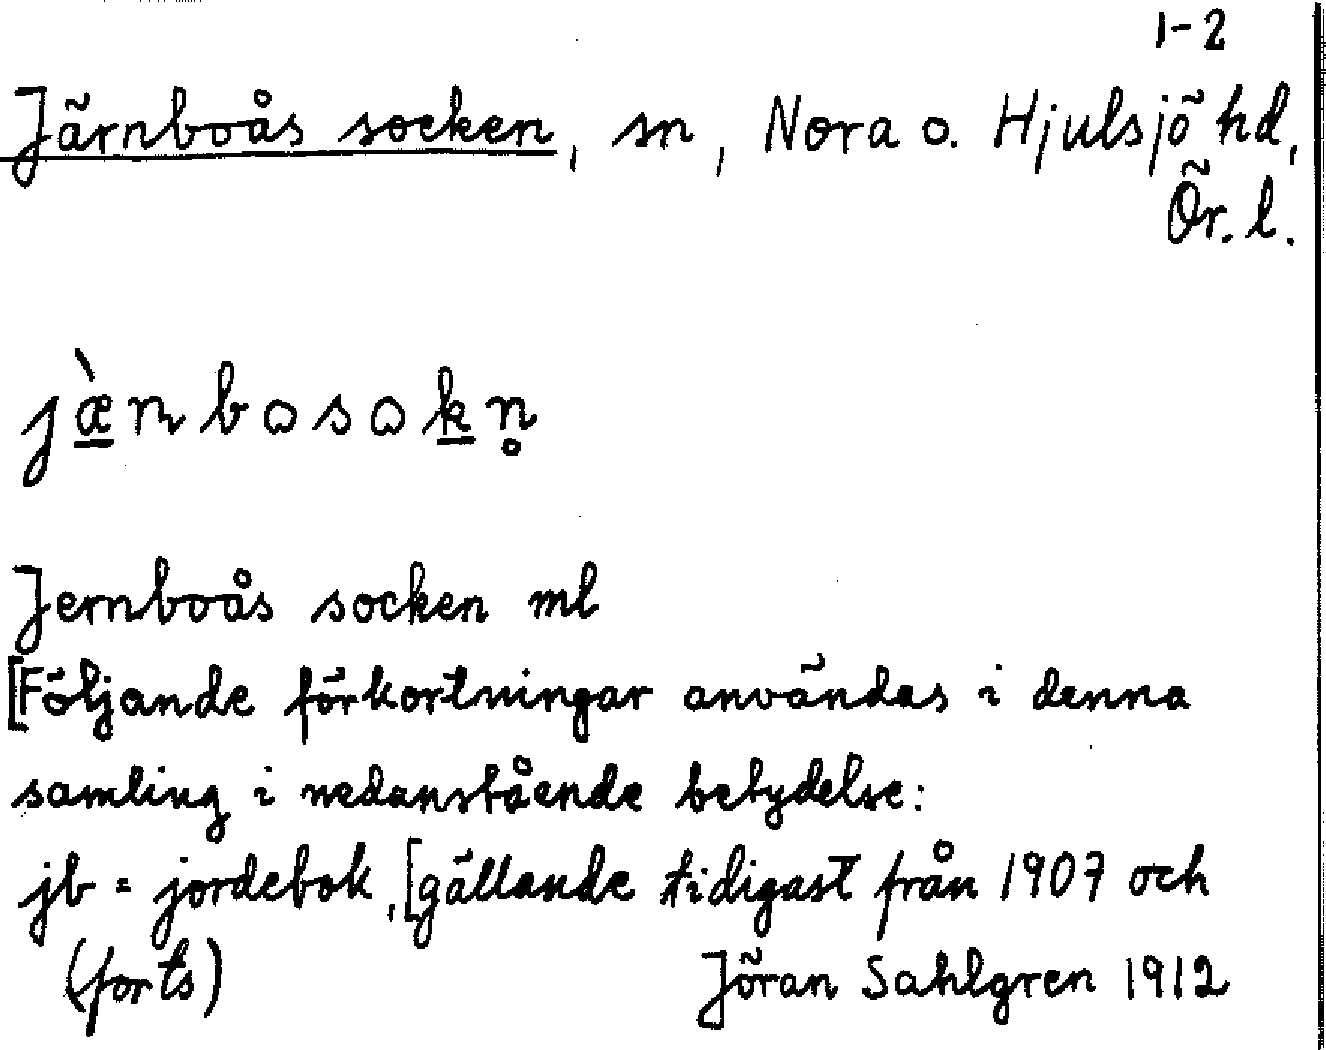 1-2
Järnboås socken, sn, Nora o. Hjulsjö hd,
Ör. l.
jæ̲̀nbɷsɷk̲n̥
Jernboås socken ml
[Följande förkortningar användas i denna
samling i nedanstående betydelse:
jb = jordebok, [gällande tidigast från 1907 och
(forts) Jöran Sahlgren 1912